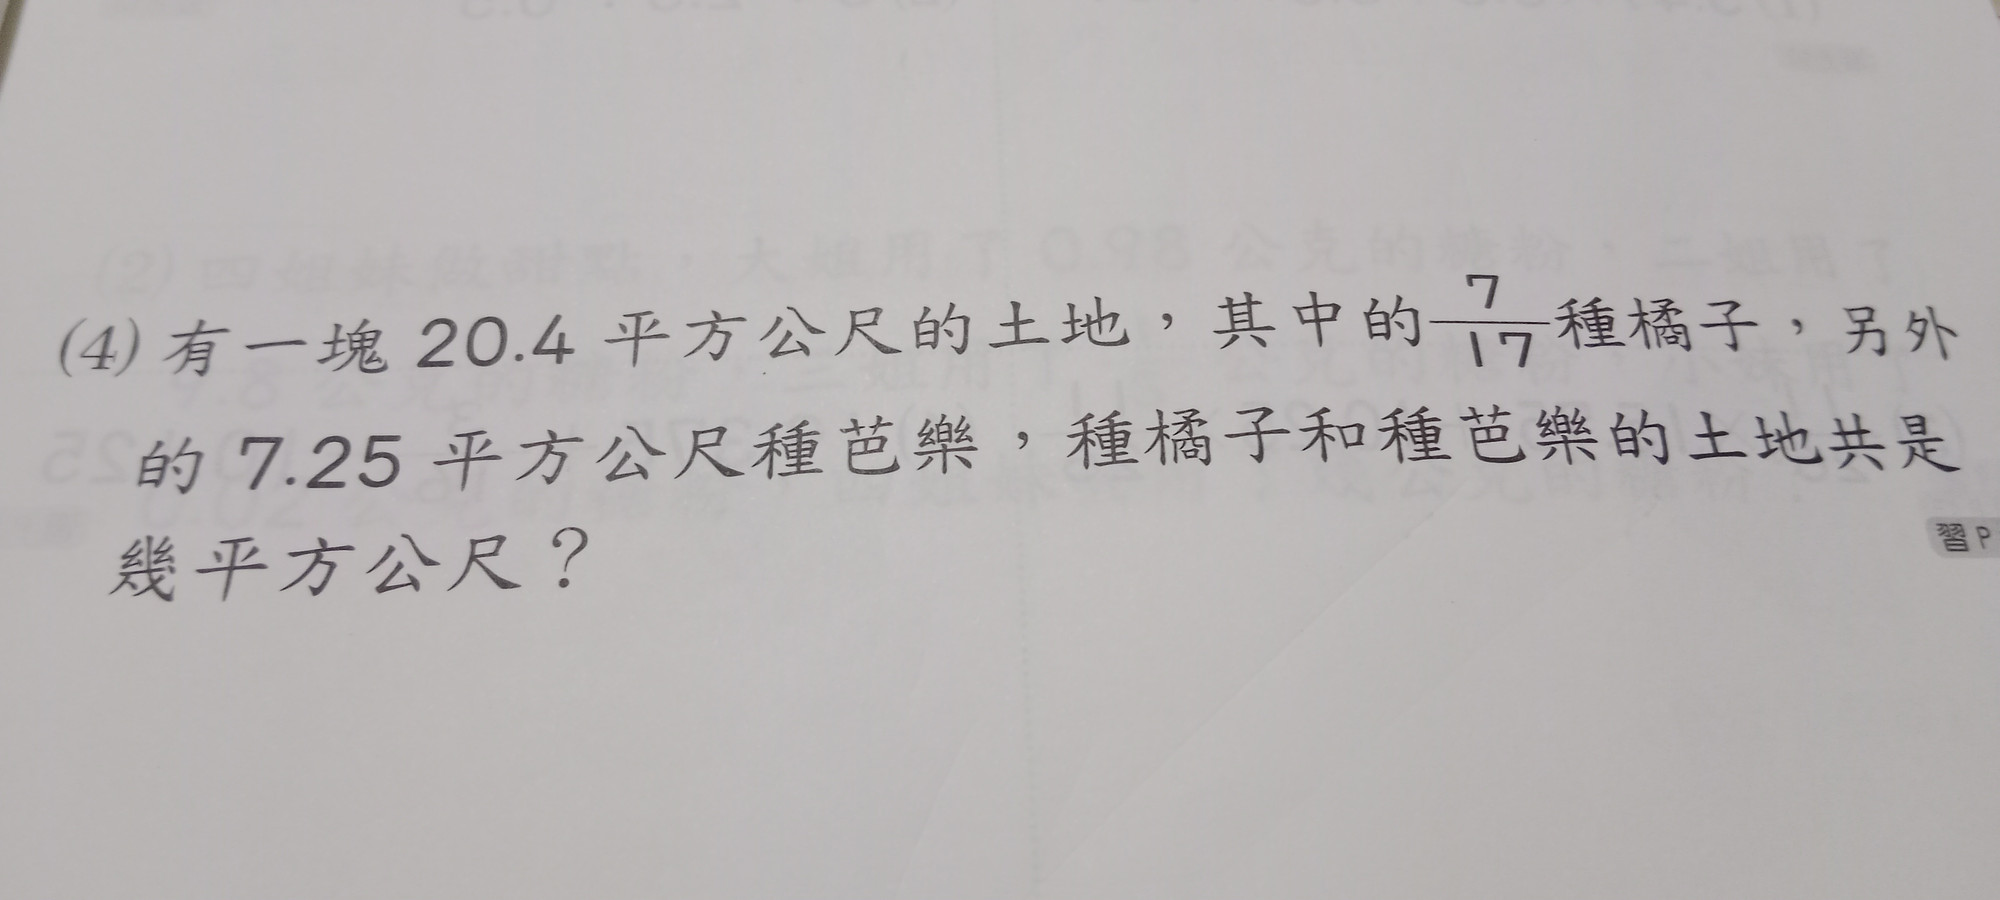 (4) 有一塊 20.4 平方公尺的土地，其中的 7/17 種橘子，另外
的 7.25 平方公尺種芭樂，種橘子和種芭樂的土地共是
幾平方公尺？
習P